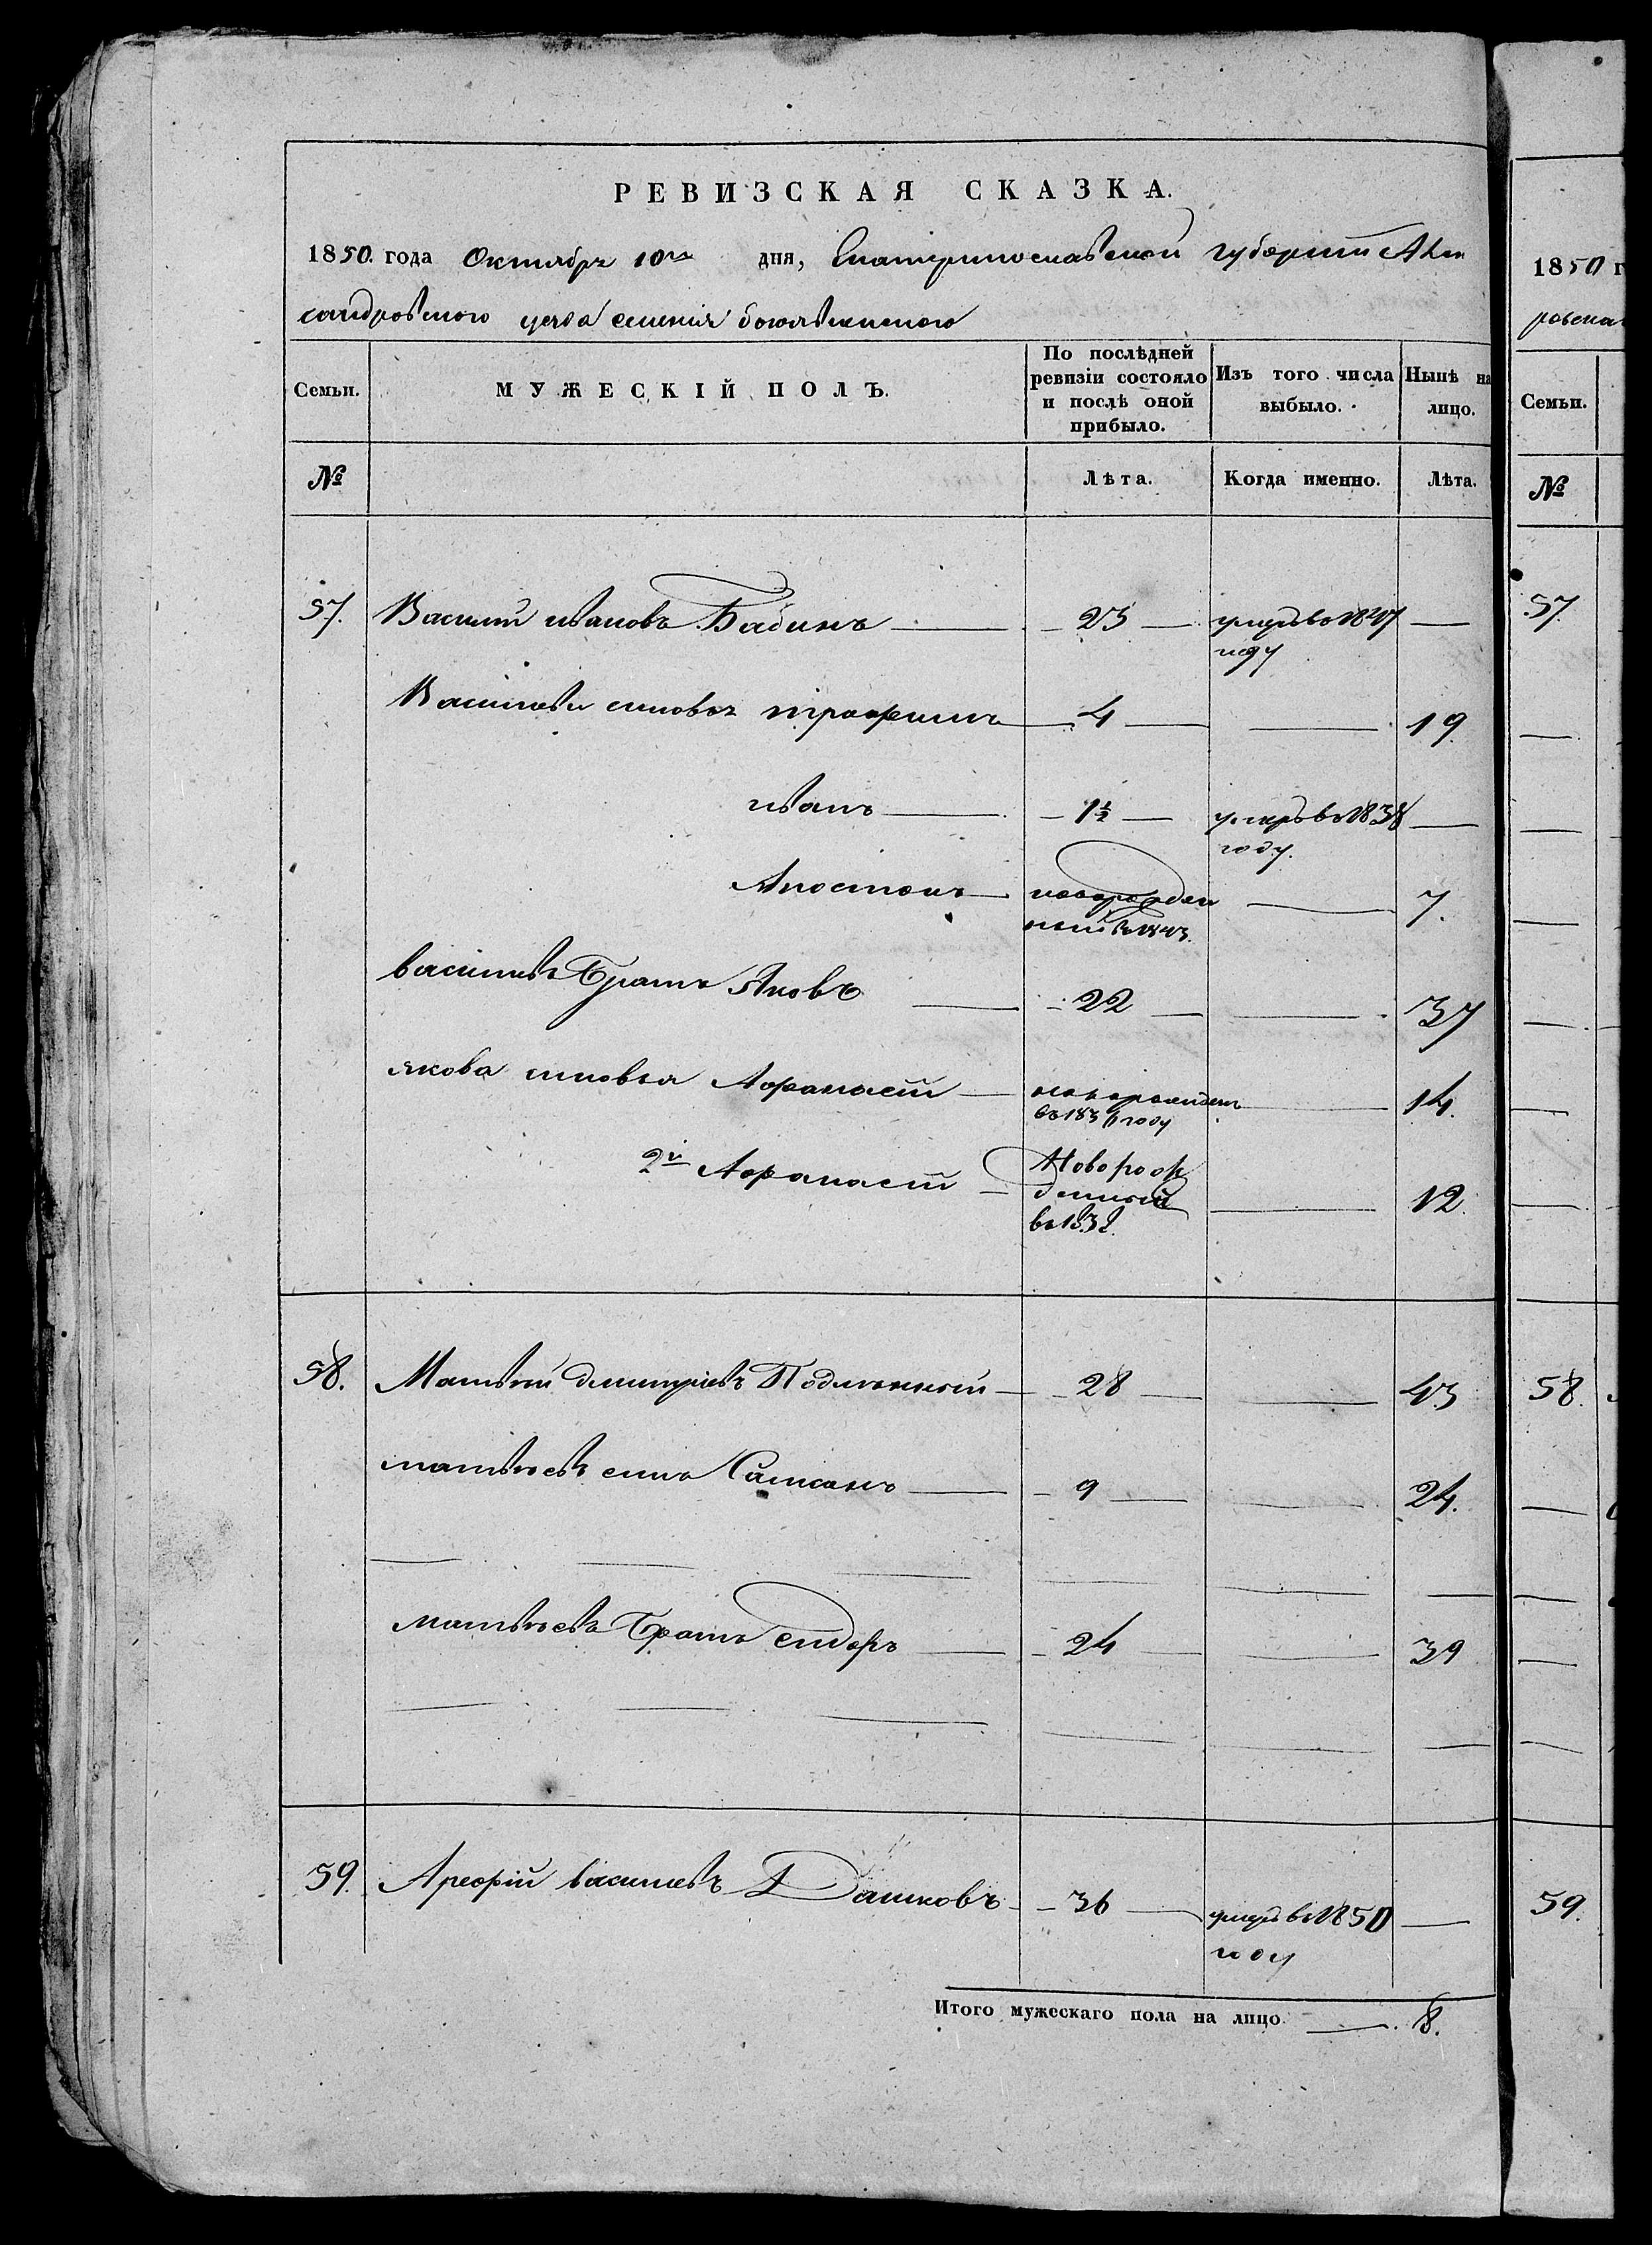 РЕВИЗСКАЯ СКАЗКА.
1850. года Октября 10го дня, Екатеринославской губернии Алек
сандровского уезда селения богоявленского
Семьи.
МУЖЕСКІЙ ПОЛЪ.
По послѣдней ревизіи состояло и послѣ оной прибыло.
Изъ того числа выбыло.
Нынѣ на лицо.
№
Лѣта.
Когда именно.
Лѣта.
57. Василий ивановъ Бабинъ — 23 — умеръ въ 1847 —
году
Васильевы сыновья трофимъ — 4 — — 19.
иванъ — 1½ — умеръ въ 1838 —
году.
Апостолъ — новорожден — 7.
ный въ 1843.
васильевъ Братъ Яковъ — 22 — — 37
якова сыновья Афанасий — новорожденъ — 14.
въ 1836 году
2й Афанасий — Новорож
денный — 12.
въ 1838.
58. Матвей дмитриевъ — 28 — — 43
матвеевъ сынъ — 9 — — 24.
матвеевъ Братъ сидоръ — 24 — — 39
59. Арефий васильевъ Дашковъ — 36 — умеръ въ 1850 —
году
Итого мужескаго пола на лицо — 8.
1850 г
ровска
Семьи.
№
57.
58.
59.